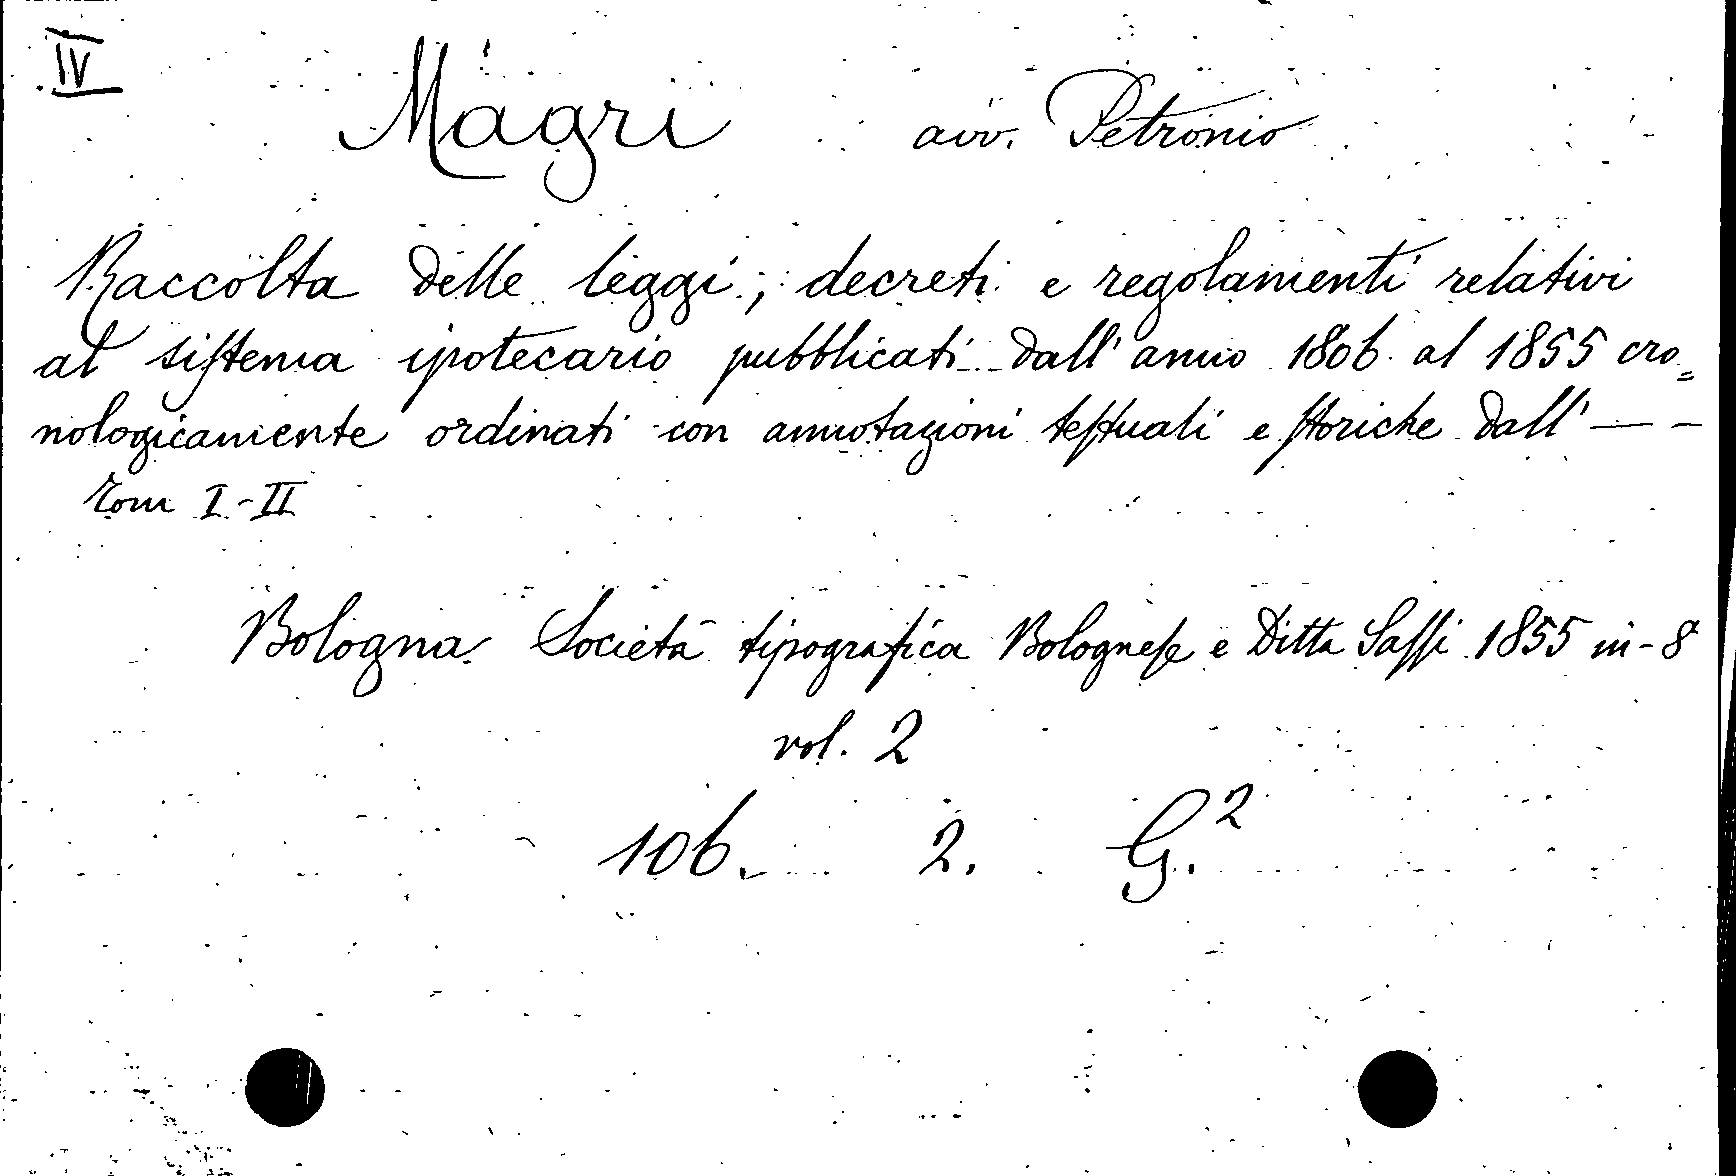 IV
Magri avv. Petronio
Raccolta delle leggi, decreti e regolamenti relativi
al sistema ipotecario pubblicati dall' anno 1806 al 1855 cro=
nologicamente ordinati con annotazioni testuali e storiche dall' — -
Tom I-II
Bologna Società tipografica Bolognese e Ditta Sassi 1855 in-8
vol. 2
106. 2. G.²